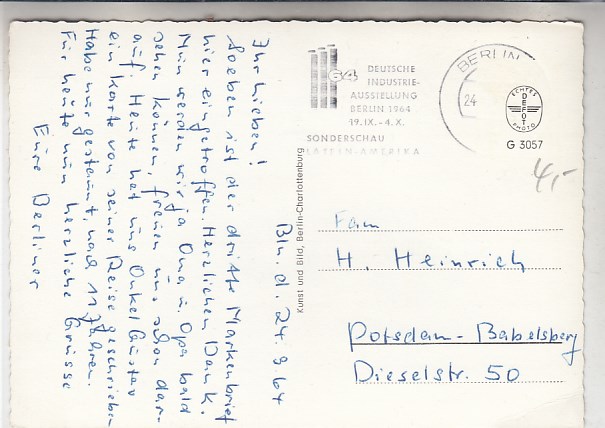 Bln. d. 24. 9. 64
Ihr Lieben!
Soeben ist der dritte Markenbrief
hier eingetroffen. Herzlichen Dank.
Nun werden wir ja Oma u. Opa bald
sehen können, freuen uns schon dar-
auf. Heute hat uns Onkel Gustav
ein Karte von seiner Reise geschrieben
Habe nur gestaunt, nach 11 Jahren.
Für heute nun herzliche Grüsse
Eure Berliner
Kunst und Bild, Berlin-Charlottenburg
64
DEUTSCHE
INDUSTRIE-
AUSSTELLUNG
BERLIN 1964
19.IX.-4.X.
SONDERSCHAU
LATEIN-AMERIKA
BERLIN
24
ECHTES
DEFOT
PHOTO
G 3057
4,-
Fam
H. Heinrich
Potsdam-Babelsberg
Dieselstr. 50